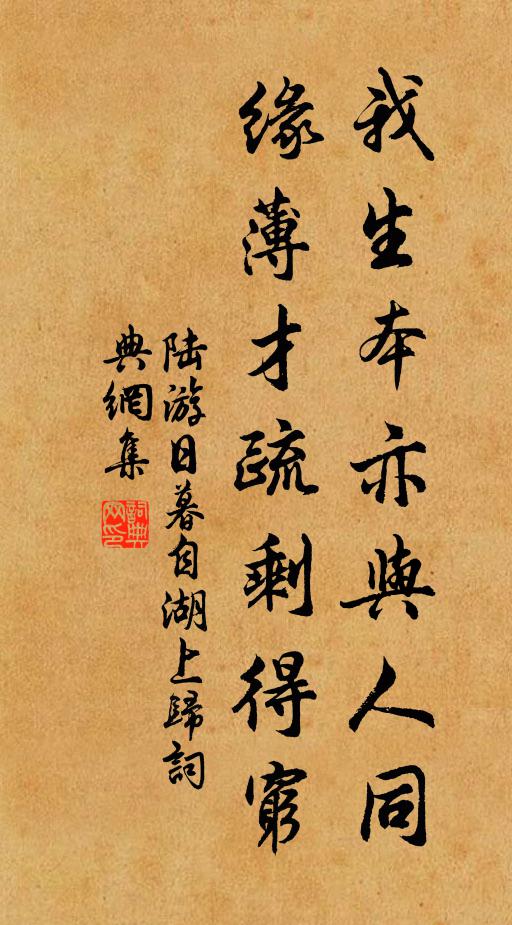 我生本亦與人同
緣薄才疏剩得窮
陆游日暮自湖上歸詞
典網集
詞典
网印